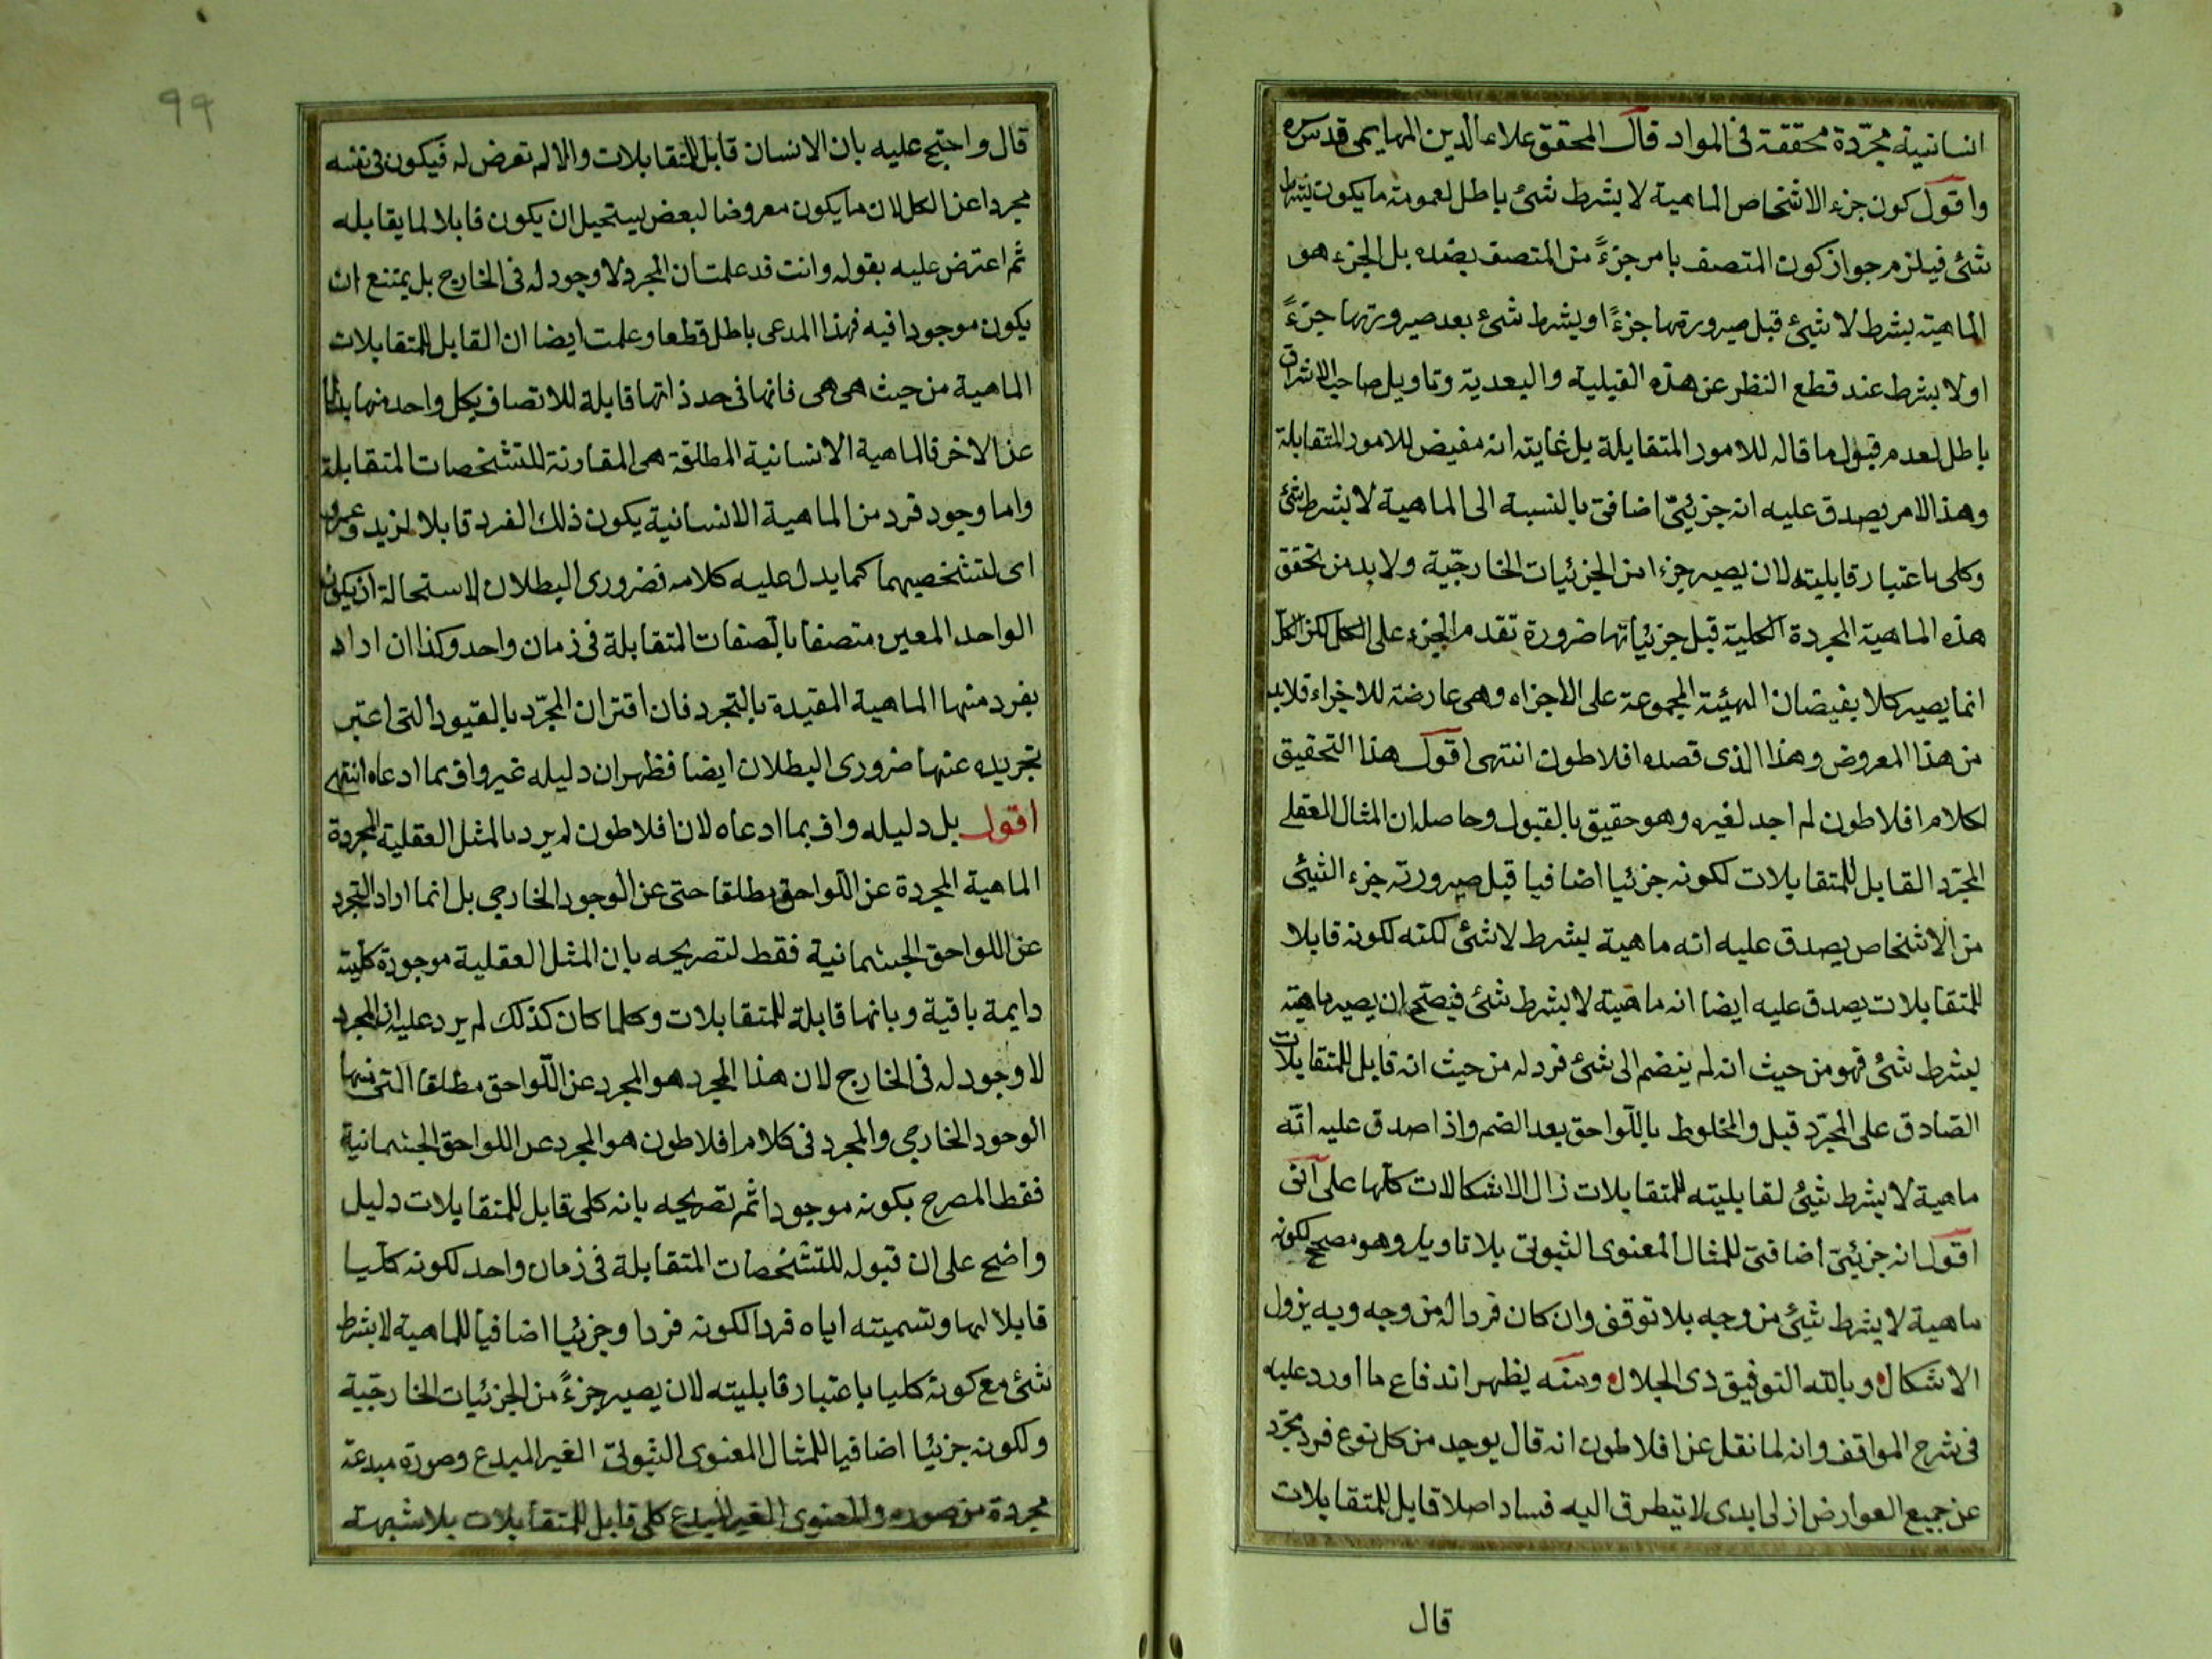 انسانية مجرّدة محققة فى المواد قال المحقق علاء الدين المهايمى قدس سره
واقول كون جزء الاشخاص الماهية لا بشرط شئ باطل لعمومته ما يكون بشرط
شئ فيلزم جواز كون المتصف بامر جزءً من المتصف بضده بل الجزء هو
الماهية بشرط لا شيئ قبل صيرورتها جزءً او بشرط شئ بعد صيرورتها جزءً
او لا بشرط عند قطع النظر عن هذه القبلية والبعدية وتاويل صاحب الاشراق
باطل لعدم قبول ما قاله للامور المتقابلة بل غايته انه مفيض للامور المتقابلة
وهذا الامر يصدق عليه انه جزئيّ اضافىّ بالنسبة الى الماهية لا بشرط شئ
وكلى باعتبار قابليته لان يصير جزءا من الجزئيات الخارجّية ولا بد من تحقق
هذه الماهية المجردة الكلية قبل جزئياتها ضرورة تقدم الجزء على الكل لكن الكل
انما يصير كلا بفيضان الهيئة المجموعة على الاجزاء وهى عارضة للاجزاء فلا بد
من هذا المعروض وهذا الذى قصده افلاطون انتهى اقول هذا التحقيق
لكلام افلاطون لم اجد لغيره وهو حقيق بالقبول وحاصله ان المثال العقلى
المجرّد القابل للمتقابلات لكونه جزئيا اضافيا قبل صيرورته جزء الشيئ
من الاشخاص يصدق عليه انه ماهية بشرط لا شئ لكنه لكونه قابلا
للمتقابلات يصدق عليه ايضا انه ماهية لا بشرط شئ فيصّح ان يصير ماهية
بشرط شئ فهو من حيث انه لم ينضم الى شئ فرد له من حيث انه قابل للمتقابلات
الصّادق على المجرّد قبل والمخلوط باللّواحق بعد الضم واذا صدق عليه انّه
ماهية لا بشرط شيئ لقابليته للمتقابلات زال الاشكالات كلّها على انى
اقول انه جزئيّ اضافىّ للمثال المعنوى الثبوتىّ بلا تاويل وهو مصحح لكونه
ماهية لا بشرط شيئ من وجه بلا توقف وان كان فردا له من وجه وبه يزول
الاشكال وبالله التوفيق ذى الجلال ومنه يظهر اندفاع ما اورد عليه
فى شرح المواقف وانه لما نقل عن افلاطون انه قال يوجد من كل نوع فرد مجرّد
عن جميع العوارض ازلى ابدى لا يتطرق اليه فساد اصلا قابل للمتقابلات
قال
٩٩
قال واحتج عليه بان الانسان قابل للمتقابلات والا لم تعرض له فيكون فى نفسه
مجردا عن الكل لان ما يكون معروضا لبعض يستحيل ان يكون قابلا لما يقابله
ثم اعترض عليه بقوله وانت قد علمت ان المجرد لا وجود له فى الخارج بل يمتنع ان
يكون موجودا فيه فهذا المدعى باطل قطعا وعلمت ايضا ان القابل للمتقابلات
الماهية من حيث هى هى فانها فى حد ذاتها قابلة للاتصاف بكل واحد منها بدلا
عن الاخر فالماهية الانسانية المطلقة هى المقارنة للتشخصات المتقابلة
واما وجود فرد من الماهية الانسانية يكون ذلك الفرد قابلا لزيد وعمرو
اى لتشخصيهما كما يدل عليه كلامه فضرورى البطلان لاستحالة ان يكون
الواحد المعين متصفا بالصفات المتقابلة فى زمان واحد وكذا ان اراد
بفرد منها الماهية المقيدة بالتجرد فان اقتران المجرّد بالقيود التى اعتبر
تجريده عنها ضرورى البطلان ايضا فظهر ان دليله غير واف بما ادعاه انتهى
اقول بل دليله واف بما ادعاه لان افلاطون لم يرد بالمثل العقلية المجردة
الماهية المجردة عن اللّواحق مطلقا حتى عن الوجود الخارجى بل انما اراد التجرد
عن اللواحق الجسمانية فقط لتصريحه بان المثل العقلية موجودة كلّية
دايمة باقية وبانها قابلة للمتقابلات وكلما كان كذلك لم يرد عليه ان المجرد
لا وجود له فى الخارج لان هذا المجرد هو المجرد عن اللّواحق مطلقا التى منها
الوجود الخارجى والمجرد فى كلام افلاطون هو المجرد عن اللواحق الجسمانية
فقط المصرح بكونه موجودا ثم تصريحه بانه كلى قابل للمتقابلات دليل
واضح على ان قبوله للتشخصات المتقابلة فى زمان واحد لكونه كلّيا
قابلا لها وتسميته اياه فردا لكونه فردا وجزئيا اضافيا للماهية لا بشرط
شئ مع كونه كليا باعتبار قابليته لان يصير جزءً من الجزئيات الخارجّية
ولكونه جزئيا اضافيا للمثال المعنوى الثبوتىّ الغير المبدع وصورة مبدعة
مجردة من صوره والمعنوى الغير المبدع كلى قابل للمتقابلات بلا شبهة